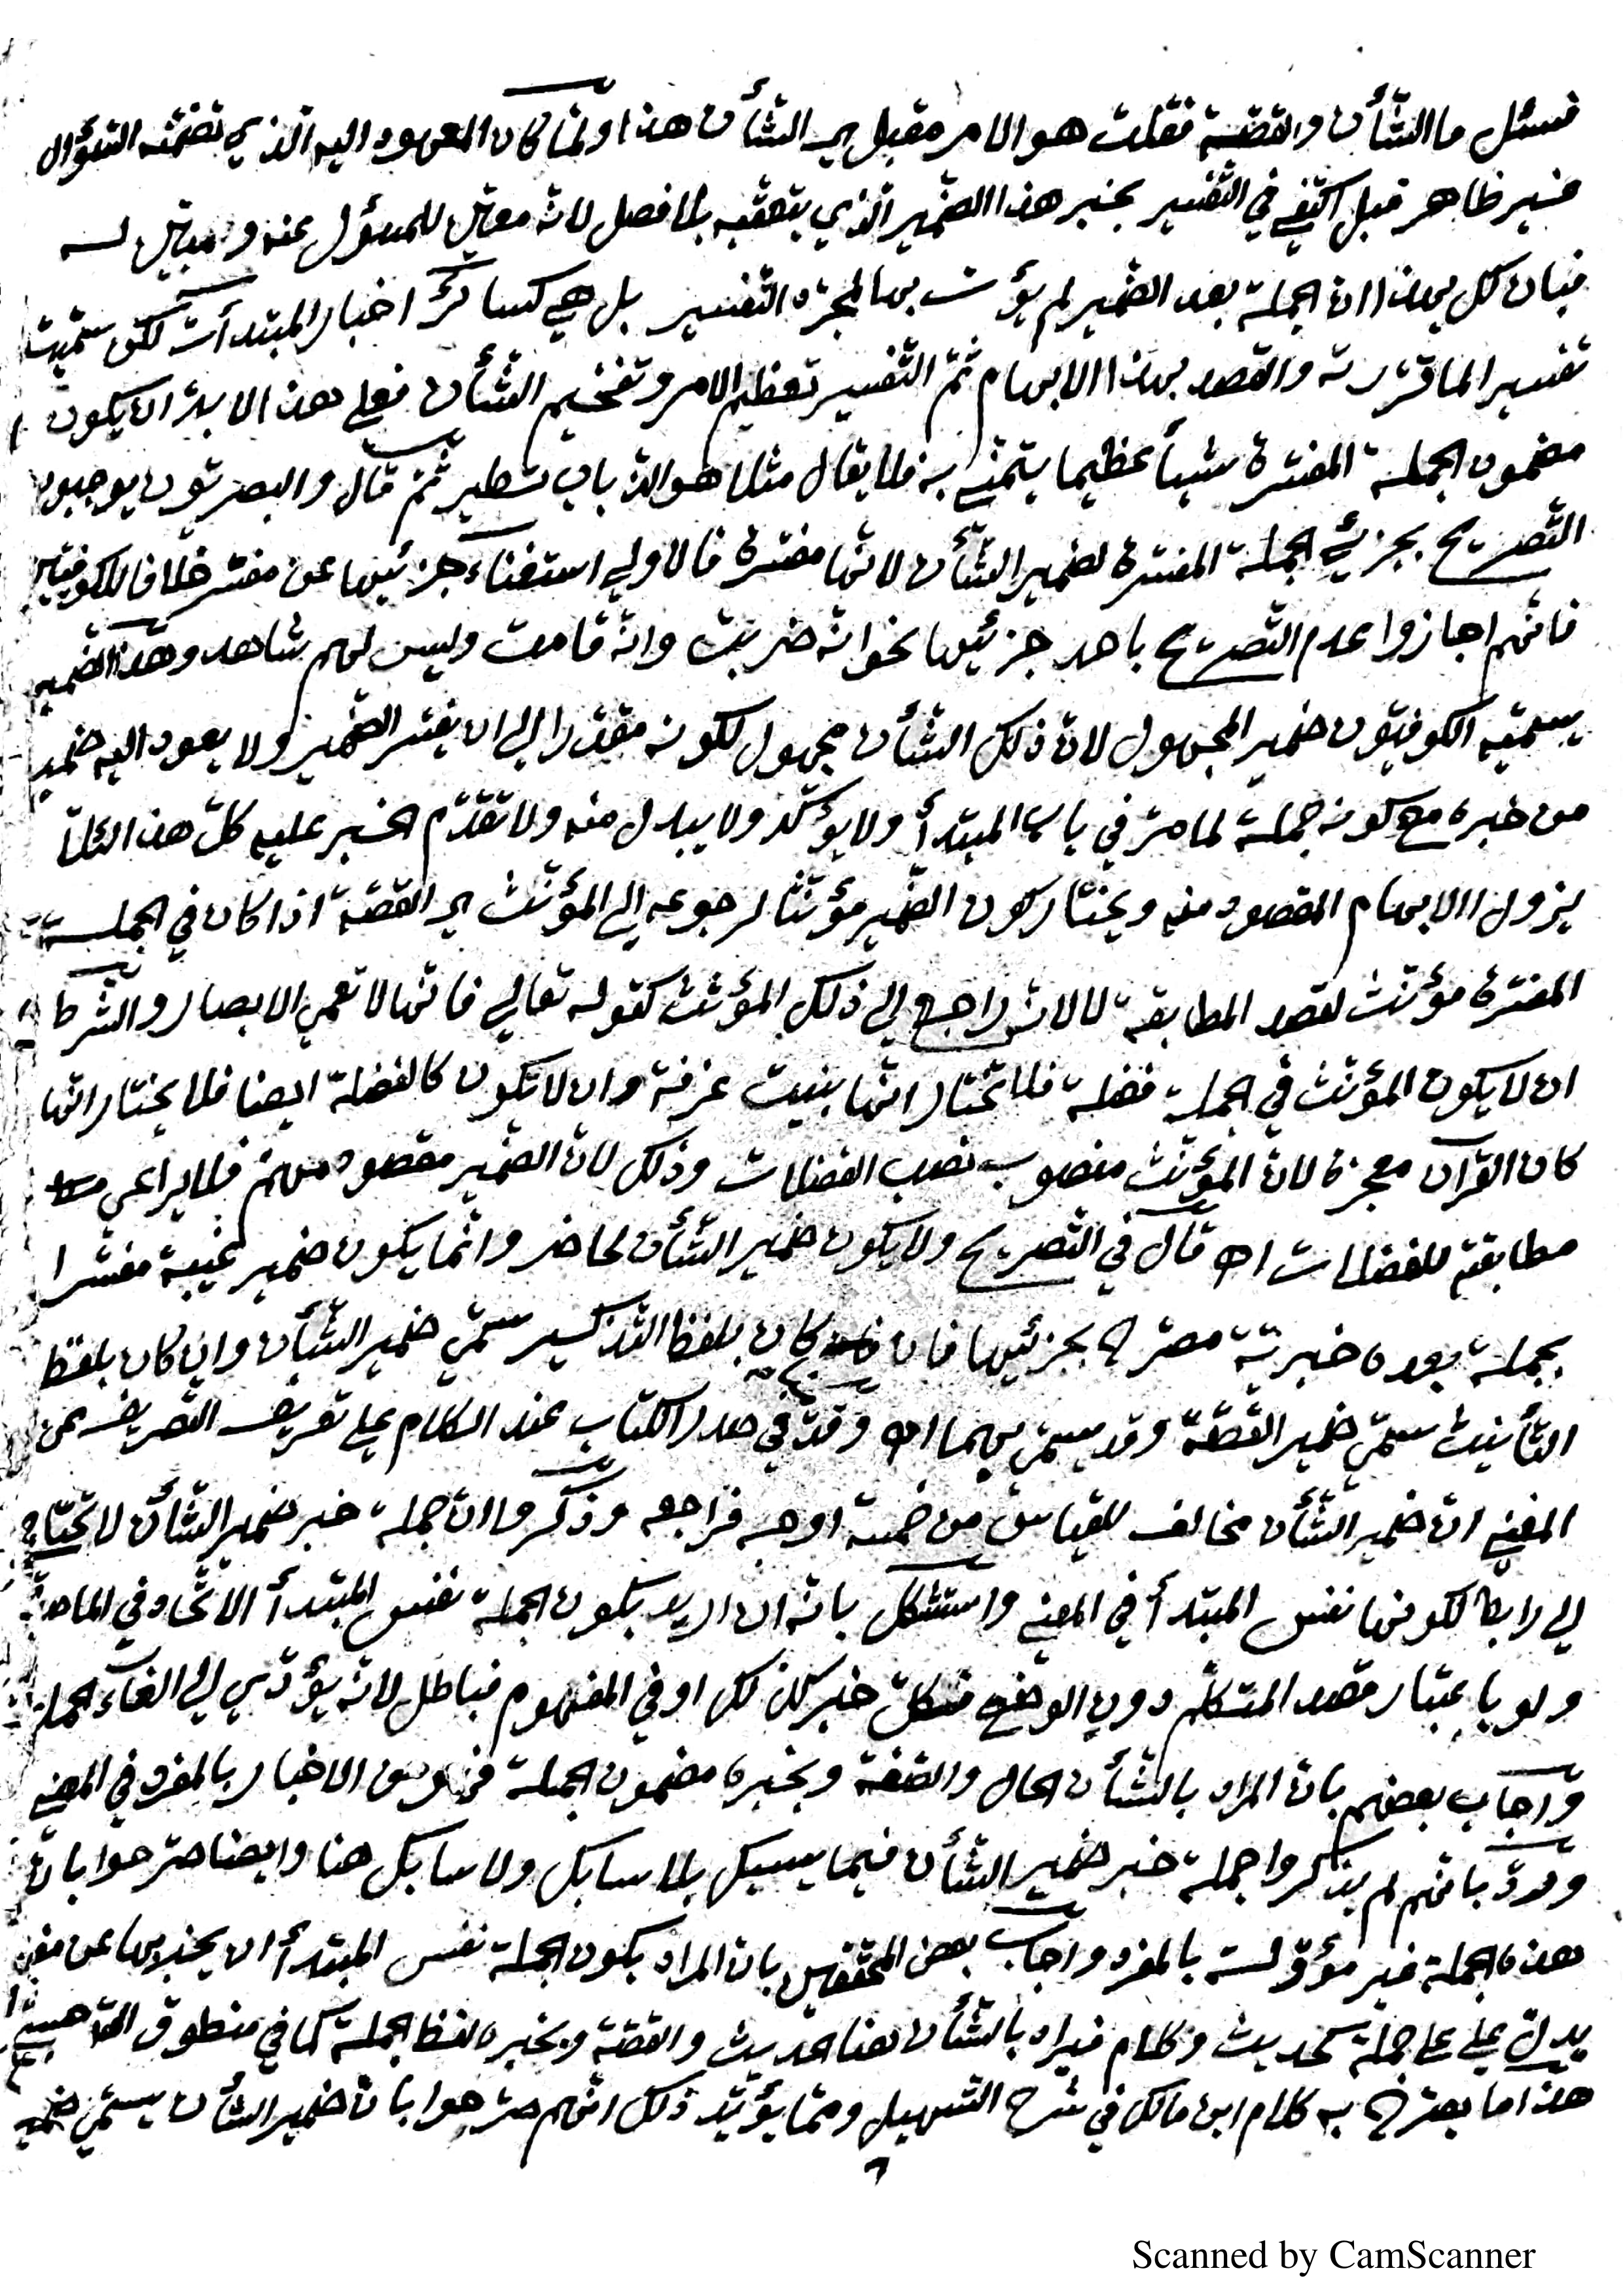 فسئل ما الشّأن والقصّة فقلت هو الامر مقبل اي الشّأن هذا ولمّا كان المعهود اليه الذي تضمّنه السّؤال
غير ظاهر قبل اكتفي في التّفسير بخبر هذا الضّمير الذي يتعقّبه بلا فصل لانّه معيّن للمسؤل عنه ومبيّن له
فبان لك بهذا انّ الجملة بعد الضّمير لم يؤت بها لمجرّد التّفسير بل هي كسائر اخبار المبتدأت لكن سمّيت
تفسير الما قرّرته والقصد بهذا الابهام ثمّ التّفسير تعظيم الامر وتفخيم الشّأن فعلي هذا لا بدّ ان يكون
مضمون الجملة المفسّرة شيأ عظيما يتمنّي به فلا يقال مثلا هو الذّباب تطير ثمّ قال والبصريّون يوجبون
التّصريح بجزئي الجملة المفسّرة لضمير الشّأن لانّها مفسّرة فالاولي استغناء جزئيها عن مفسّر خلافا للكوفيّين
فانّهم اجازوا عدم التّصريح باحد جزئيها نحو انّه ضربت وانّه قامت وليس لهم شاهد وهذا الضّمير
يسمّيه الكوفيّون ضمير المجهول لانّ ذلك الشّأن مجهول لكونه مقدّرا الي ان يفسّر الضّمير ولا يعود اليه ضمير
من خبره مع كونه جملة لما مرّ في باب المبتدأ ولا يؤكّد ولا يبدل منه ولا تقدّم الخبر عليه كلّ هذا لئلّا
يزول الابهام المقصود منه ويختار كون الضّمير مؤنّثا لرجوعه الي المؤنّث اي القصّة اذا كان في الجملة
المفسّرة مؤنّث لقصد المطابقة لا لانّه راجع الي ذلك المؤنّث كقوله تعالي فانّها لا تعمي الابصار والشّرط
ان لا يكون المؤنّث في الجملة فضلة فلا تختار انّها بنيت غرفة وان لا تكون كالفضلة ايضا فلا يختار انّها
كان القرآن معجزة لانّ المؤنّث منصوب نصب الفضلات وذلك لانّ الضّمير مقصود مهمّ فلا يراعي
مطابقته للفضلات اه قال في التّصريح ولا يكون ضمير الشّأن لحاضر وانّما يكون ضمير غيبة مفسّرا
بجملة بعده خبريّة مصرّح بجزئيها فان كان بلفظ التّذكير سمّي ضمير الشّأن وان كان بلفظ
التّأنيث سمّي ضمير القصّة وقد يسمّي بهما اه وقدّ في صدر الكتاب عند الكلام علي تعريف التّصريف عن
المغني انّ ضمير الشّأن مخالف للقياس من خمسة اوجه فراجعه وذكروا انّ جملة خبر ضمير الشّأن لا تحتاج
الي رابط لكونها نفس المبتدأ في المعني واستشكل بانّه ان اريد بكون الجملة نفس المبتدأ الاتّحاد في الماصدق
ولو باعتبار قصد المتكلّم دون الوضع فكلّ خبر كذلك او في المفهوم فباطل لانّه يؤدّي الي الغاء الحمل
واجاب بعضهم بانّ المراد بالشّأن الحال والصّفة وبخبره مضمون الجملة فهو من الاخبار بالمفرد في المعني
وردّ بانّهم لم يذكروا جملة خبر ضمير الشّأن فيما يسبك بلا سابك ولا سابك هنا وايضا صرّحوا بانّ
هذه الجملة غير مؤوّلة بالمفرد واجاب بعض المحقّقين بانّ المراد بكون الجملة نفس المبتدأ ان يخبر بها عن مفرد
يدلّ علي علي جملة كحديث وكلام فيراد بالشّأن هنا الحديث والقصّة وبخبره لفظ الجملة كما في منطوق اللّه حسبي
هذا ما يصرّح به كلام ابن مالك في شرح التّسهيل وممّا يؤيّد ذلك انّهم صرّحوا بانّ ضمير الشّأن يسمّي ضمير
Scanned by CamScanner